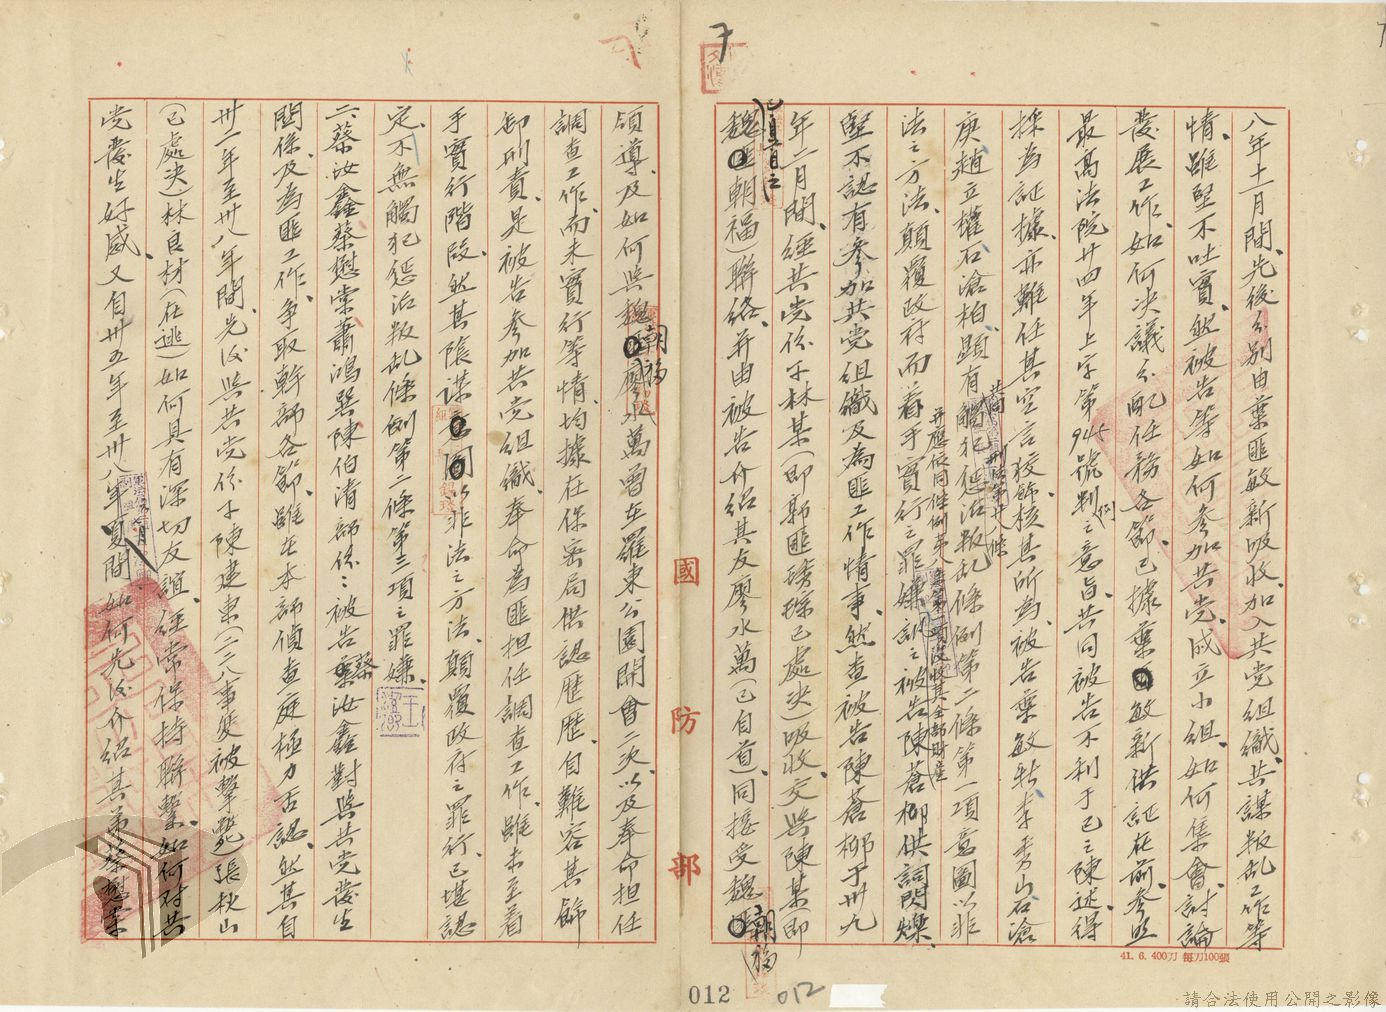 八年十一月間、先後分別由葉匪敏新吸收、加入共党組織、共謀叛乱工作等
情、雖堅不吐實、然被告等如何參加共党、成立小組、如何集會討論
發展工作、如何決議分配任務各節、已據葉敏新供証在前、參照
最高法院廿四年上字第945號判例之意旨、共同被告不利于己之陳述、得
採為証據、亦難任其空言狡飾、核其所為、被告葉敏新李秀山石滄
庚趙立權石滄柏、顯有觸犯懲治叛乱條例第二條第一項意圖以非
共同 刑法第廿八條
法之方法、顛覆政府而着手實行之罪嫌、訊之被告陳蒼柳供詞閃爍、
并應依同條例第八條第一項沒收其全部財產
堅不認有參加共党組織及為匪工作情事、然查被告陳蒼柳于卅九
年二月間、經共党份子林某(即郭匪琇琮已處决)吸收、交與陳某(即
魏匪朝福)聯絡、并由被告介紹其友廖水萬(已自首)同接受魏朝福
已自首之
領導、及如何與魏朝福廖水萬曾在羅東公園開會二次、以及奉命担任
調查工作、而未實行等情、均據在保密局供認歷歷、自難容其飾
卸刑責、是被告參加共党組織、奉命為匪担任調查工作、雖未至着
手實行階段、然其陰謀以非法之方法、顛覆政府之罪行、已堪認
定、不無觸犯懲治叛乱條例第二條第三項之罪嫌、
二、蔡汝鑫蔡懋棠蕭鴻巽陳伯清部份：被告蔡汝鑫對與共党發生
關係、及為匪工作、爭取幹部各節、雖在本部偵查庭極力否認、然其自
卅一年至卅八年間、先后與共党份子陳建東(二二八事変被擊斃)張秋山
(已處决)林良材(在逃)如何具有深切友誼、經常保持聯繫、如何对共
党發生好感、又自卅五年至卅八年夏間、如何先后介紹其弟蔡懋棠
國防部
41. 6. 400刀 每刀100張
012
012
7
請合法使用公開之影像